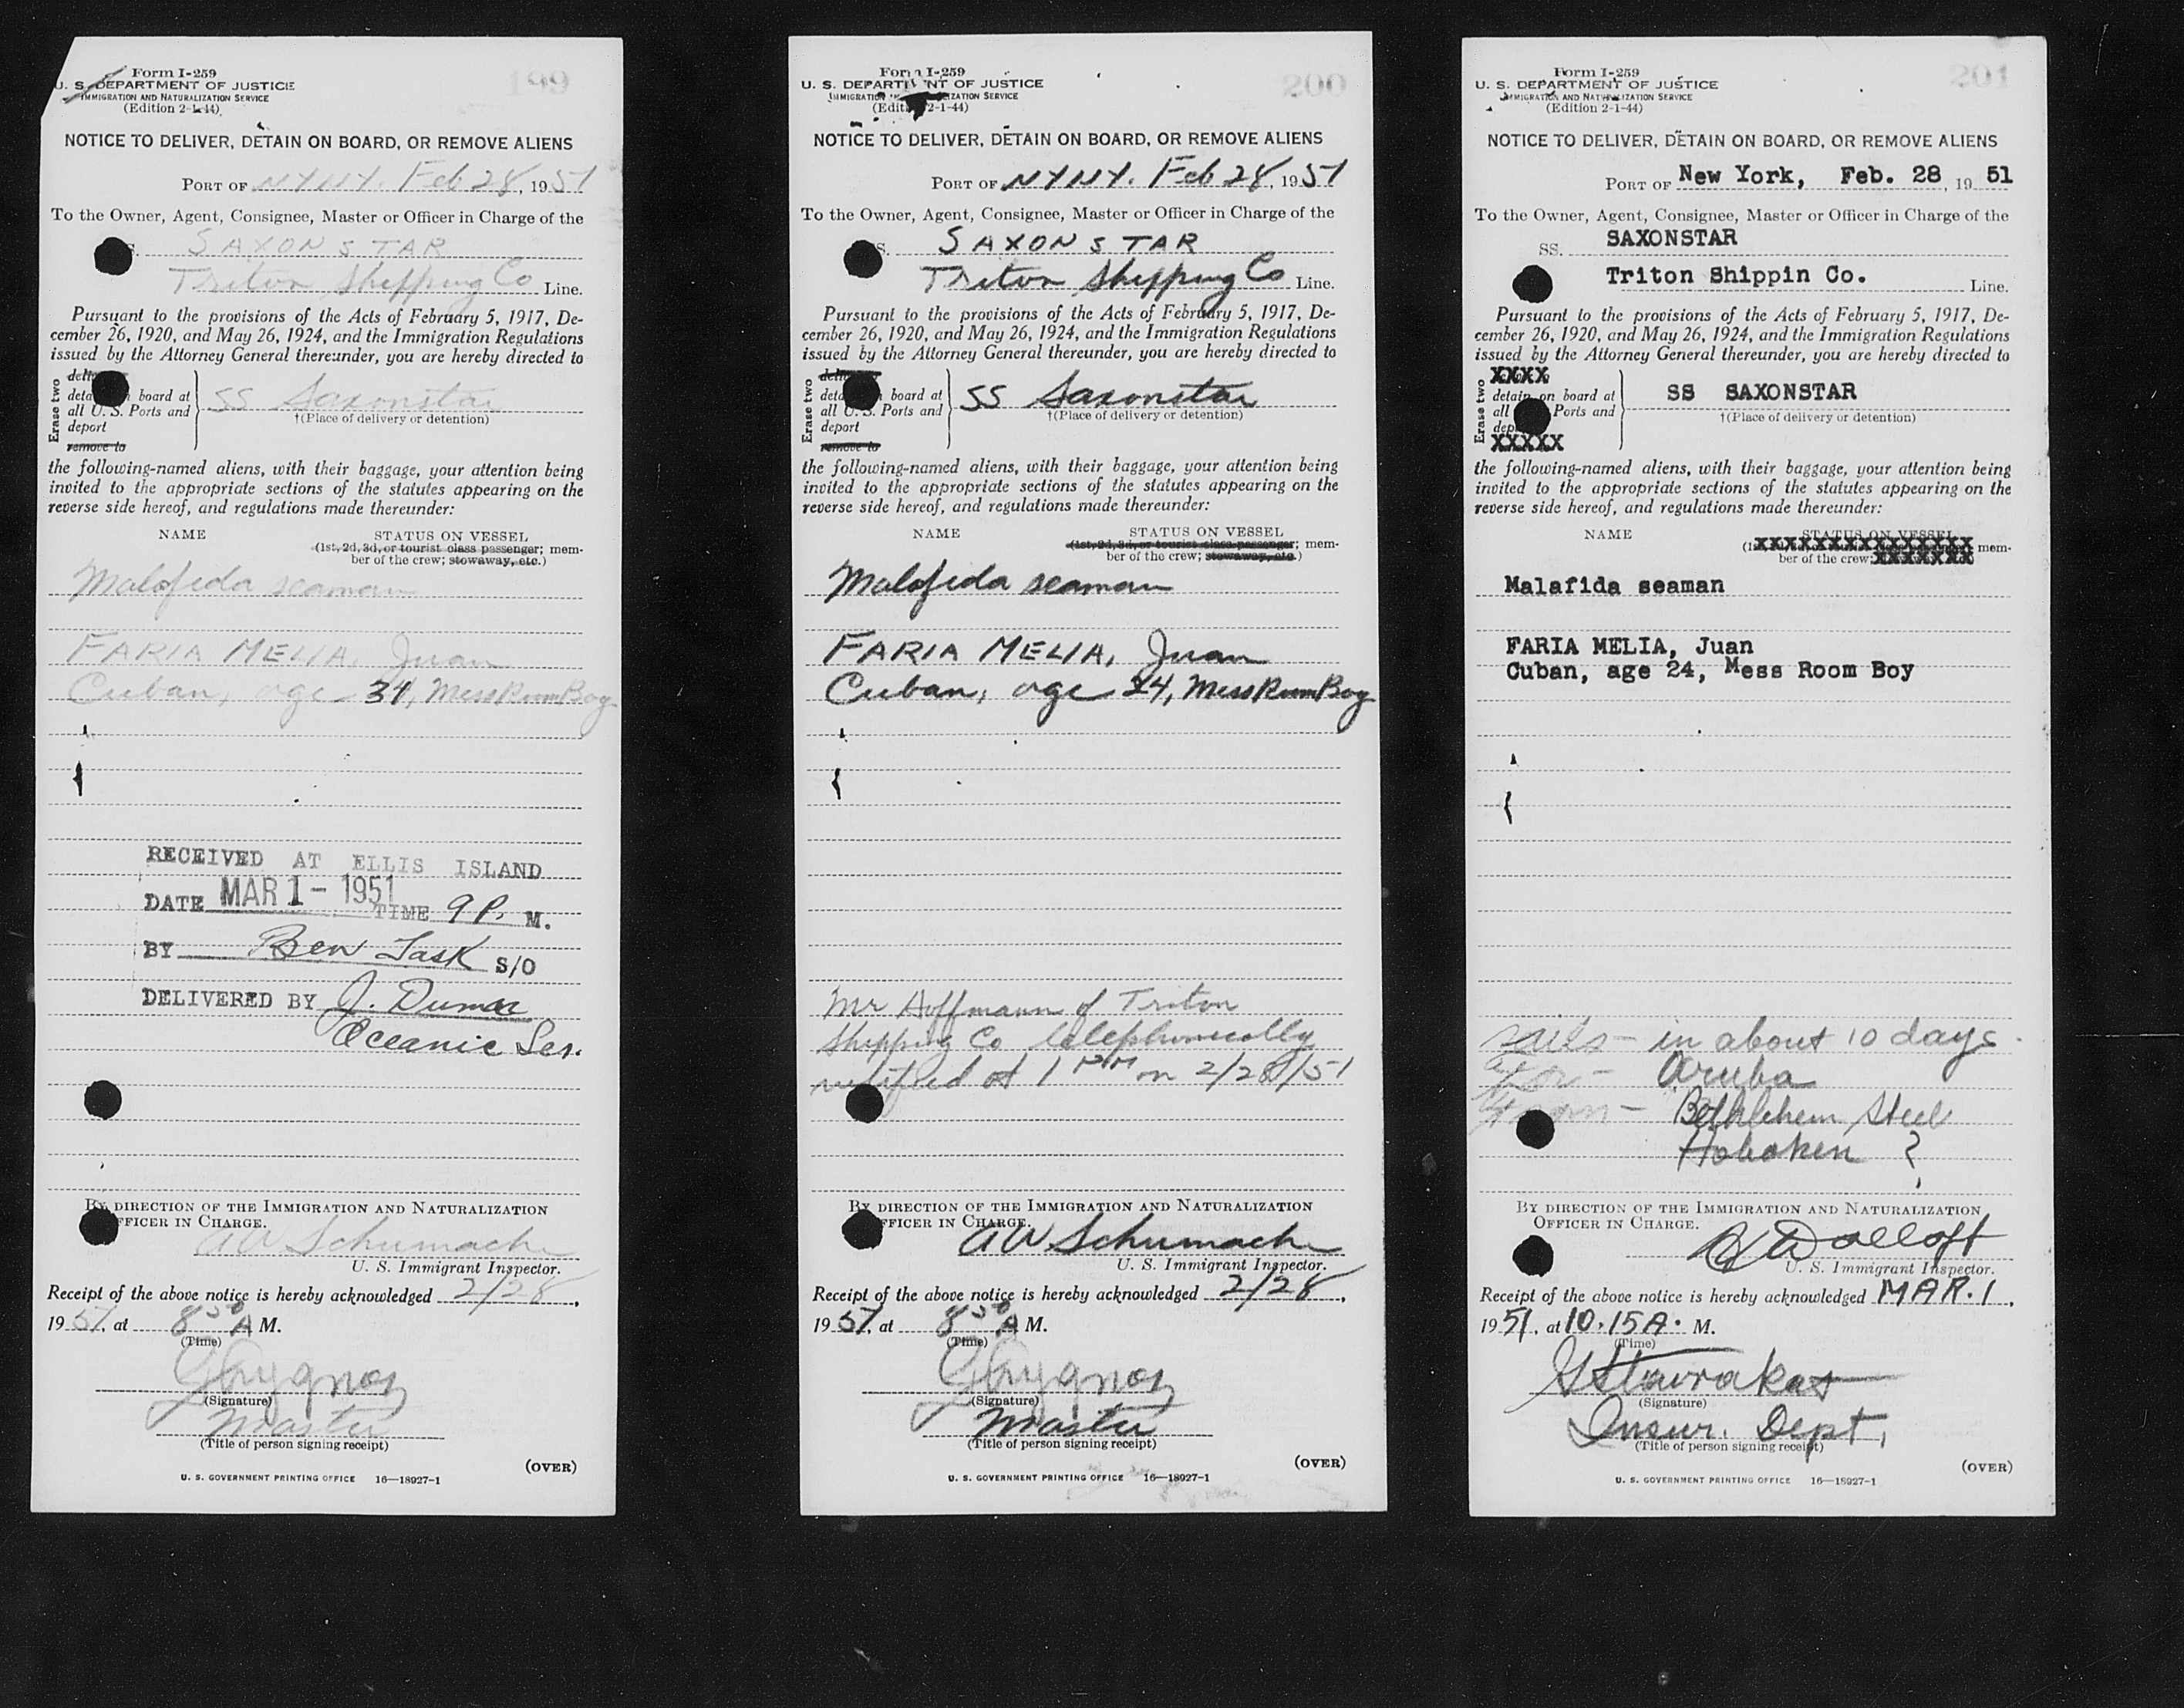 199
Form I-259
U. S. DEPARTMENT OF JUSTICE
IMMIGRATION AND NATURALIZATION SERVICE
(Edition 2-1-44)
NOTICE TO DELIVER, DETAIN ON BOARD, OR REMOVE ALIENS
PORT OF NYNY. Feb 28, 1951
To the Owner, Agent, Consignee, Master or Officer in Charge of the
S. SAXONSTAR
Triton Shipping Co Line.
Pursuant to the provisions of the Acts of February 5, 1917, De-
cember 26, 1920, and May 26, 1924, and the Immigration Regulations
issued by the Attorney General thereunder, you are hereby directed to
Erase two
deli
deta board at
all U. S. Ports and
deport
remove to
SS Saxonstar
†(Place of delivery or detention)
the following-named aliens, with their baggage, your attention being
invited to the appropriate sections of the statutes appearing on the
reverse side hereof, and regulations made thereunder:
NAME STATUS ON VESSEL
(1st, 2d, 3d, or tourist class passenger; mem-
ber of the crew; stowaway, etc.)
Malofida seaman
FARIA MELIA, Juan
Cuban, age 34, Mess Room Boy
RECEIVED AT ELLIS ISLAND
DATE MAR 1 - 1951 TIME 9 P. M.
BY Ben Task S/O
DELIVERED BY J. Dumar
Oceanic Ser.
BY DIRECTION OF THE IMMIGRATION AND NATURALIZATION
FFICER IN CHARGE.
AW Schumach
U. S. Immigrant Inspector.
Receipt of the above notice is hereby acknowledged 2/28,
1951, at 8 50 A M.
(Time)
(Signature)
Master
(Title of person signing receipt)
(OVER)
U. S. GOVERNMENT PRINTING OFFICE 16—18927-1
200
Form I-259
U. S. DEPARTM NT OF JUSTICE
IMMIGRATION IZATION SERVICE
(Edit 2-1-44)
NOTICE TO DELIVER, DETAIN ON BOARD, OR REMOVE ALIENS
PORT OF NYNY. Feb 28, 1951
To the Owner, Agent, Consignee, Master or Officer in Charge of the
S. SAXONSTAR
Triton Shipping Co Line.
Pursuant to the provisions of the Acts of February 5, 1917, De-
cember 26, 1920, and May 26, 1924, and the Immigration Regulations
issued by the Attorney General thereunder, you are hereby directed to
Erase two
deli
deta board at
all U. S. Ports and
deport
remove to
SS Saxonstar
†(Place of delivery or detention)
the following-named aliens, with their baggage, your attention being
invited to the appropriate sections of the statutes appearing on the
reverse side hereof, and regulations made thereunder:
NAME STATUS ON VESSEL
(1st, 2d, 3d, or tourist class passenger; mem-
ber of the crew; stowaway, etc.)
Malofida seaman
FARIA MELIA, Juan
Cuban, age 24, Mess Room Boy
Mr Hoffmann of Triton
Shipping Co telephonically
notified at 1 PM on 2/28/51
BY DIRECTION OF THE IMMIGRATION AND NATURALIZATION
FFICER IN CHARGE.
AW Schumach
U. S. Immigrant Inspector.
Receipt of the above notice is hereby acknowledged 2/28,
1951, at 8 50 A M.
(Time)
(Signature)
Master
(Title of person signing receipt)
(OVER)
U. S. GOVERNMENT PRINTING OFFICE 16—18927-1
201
Form I-259
U. S. DEPARTMENT OF JUSTICE
IMMIGRATION AND NATURALIZATION SERVICE
(Edition 2-1-44)
NOTICE TO DELIVER, DETAIN ON BOARD, OR REMOVE ALIENS
PORT OF New York, Feb. 28, 1951
To the Owner, Agent, Consignee, Master or Officer in Charge of the
SS. SAXONSTAR
Triton Shippin Co. Line.
Pursuant to the provisions of the Acts of February 5, 1917, De-
cember 26, 1920, and May 26, 1924, and the Immigration Regulations
issued by the Attorney General thereunder, you are hereby directed to
Erase two
XXXX
detain on board at
all Ports and
dep
XXXXX
SS SAXONSTAR
†(Place of delivery or detention)
the following-named aliens, with their baggage, your attention being
invited to the appropriate sections of the statutes appearing on the
reverse side hereof, and regulations made thereunder:
NAME STATUS ON VESSEL
(1XXXXXXXXXXXXXXXX mem-
ber of the crew;XXXXXXX
Malafida seaman
FARIA MELIA, Juan
Cuban, age 24, Mess Room Boy
sails - in about 10 days.
for - Aruba
from - Bethlehem Steel
Hoboken ?
BY DIRECTION OF THE IMMIGRATION AND NATURALIZATION
OFFICER IN CHARGE.
U. S. Immigrant Inspector.
Receipt of the above notice is hereby acknowledged MAR. 1,
1951, at 10.15 A. M.
(Time)
GStavrakas
(Signature)
Insur. Dept.
(Title of person signing receipt)
(OVER)
U. S. GOVERNMENT PRINTING OFFICE 16—18927-1